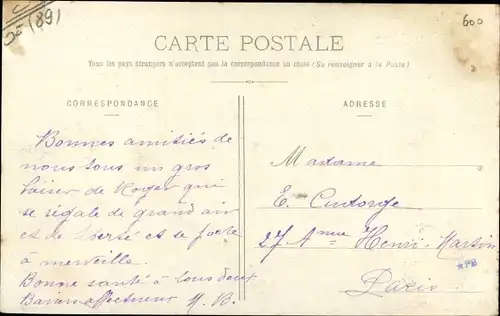 5= (89)
600
CARTE POSTALE
Tous les pays étrangers n'acceptent pas la correspondance au recto (Se renseigner à la Poste)
CORRESPONDANCE
Bonnes amitiés de
nous tous un gros
baiser de Roger qui
se régale de grand air
et de liberté et se porte
à merveille.
Bonne santé à tous deux
Baisers affectueux M. B.
ADRESSE
Madame
E.
27 Henri Martin
Paris